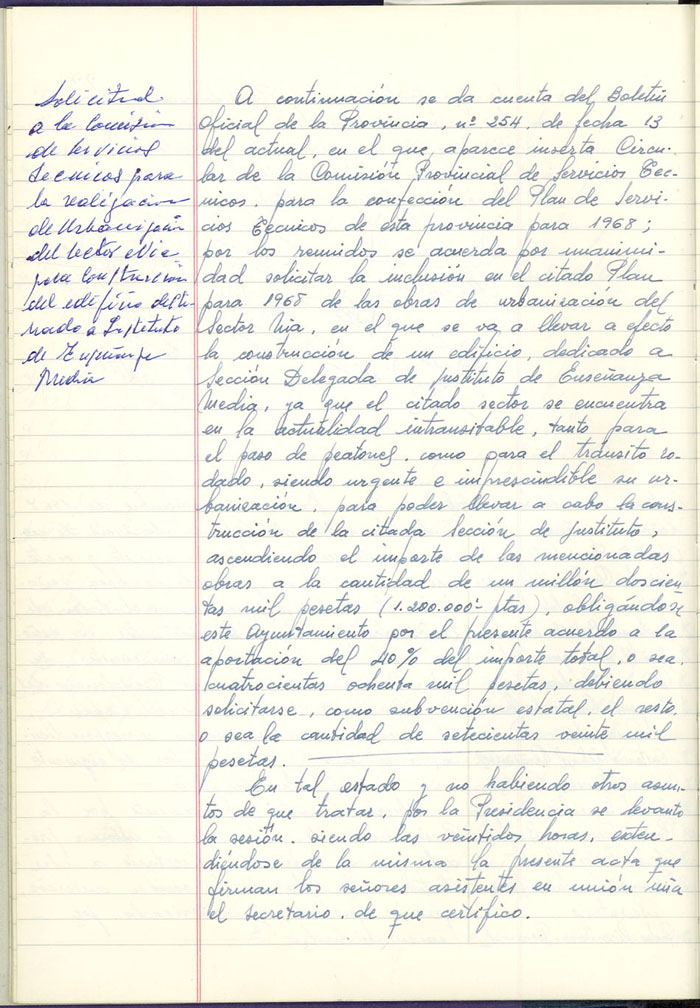 Solicitud
a la Comisión
de Servicios
Tecnicos para
la realizacion
de Urbanización
del Sector Via
para Construcción
del edificio desti
nado a Instituto
de Enseñanza
Media
A continuación se da cuenta del Boletin
Oficial de la Provincia, nº 254, de fecha 13
del actual, en el que, aparece inserta Circu-
lar de la Comisión Provincial de Servicios Téc-
nicos, para la confección del Plan de Servi-
cios Técnicos de esta provincia para 1968;
por los reunidos se acuerda por unanimi-
dad solicitar la inclusión en el citado Plan
para 1968 de las obras de urbanización del
Sector Via, en el que se va a llevar a efecto
la construcción de un edificio, dedicado a
Sección Delegada de Instituto de Enseñanza
Media, ya que el citado sector se encuentra
en la actualidad intransitable, tanto para
el paso de peatones, como para el tránsito ro-
dado, siendo urgente e imprescindible su ur-
banización, para poder llevar a cabo la cons-
trucción de la citada Sección de Instituto,
ascendiendo el importe de las mencionadas
obras a la cantidad de un millón doscien
tas mil pesetas (1.200.000'- ptas), obligándose
este Ayuntamiento por el presente acuerdo a la
aportación del 40% del importe total, o sea,
cuatrocientas ochenta mil pesetas, debiendo
solicitarse, como subvención estatal, el resto,
o sea la cantidad de setecientas veinte mil
pesetas.
En tal estado y no habiendo otros asun-
tos de que tratar, por la Presidencia se levantó
la sesión, siendo las veintidos horas, exten-
diéndose de la misma la presente acta que
firman los señores asistentes en unión
el secretario, de que certifico.